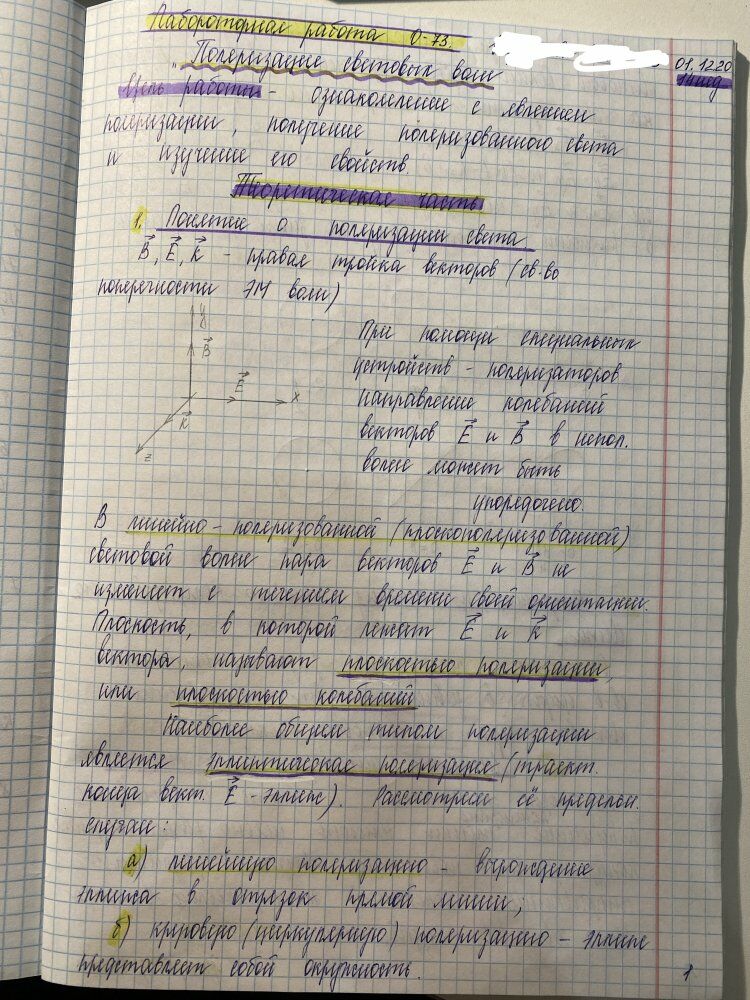 Лабораторная работа О-73.
01.12.20
"Поляризация световых волн
14 нед
Цель работы - ознакомление с явлением
поляризации, получение поляризованного света
и изучение его свойств.
Теоретическая часть
1. Понятие о поляризации света
B, E, K - правая тройка векторов (св-во
поперечности ЭМ волн)
y
B
E
x
K
z
При помощи специальных
устройств - поляризаторов
направление колебаний
векторов E и B в непол.
волне может быть
упорядочено.
В линейно - поляризованной (плоскополяризованной)
световой волне пара векторов E и B не
изменяет с течением времени своей ориентации.
Плоскость, в которой лежат E и K
вектора, называют плоскостью поляризации,
или плоскостью колебаний.
Наиболее общим типом поляризации
является эллиптическая поляризация (траект.
конца вект. E - эллипс). Рассмотрим её предельн.
случаи:
а) линейную поляризацию - вырождение
эллипса в отрезок прямой линии;
б) круговую (циркулярную) поляризацию - эллипс
представляет собой окружность.
1